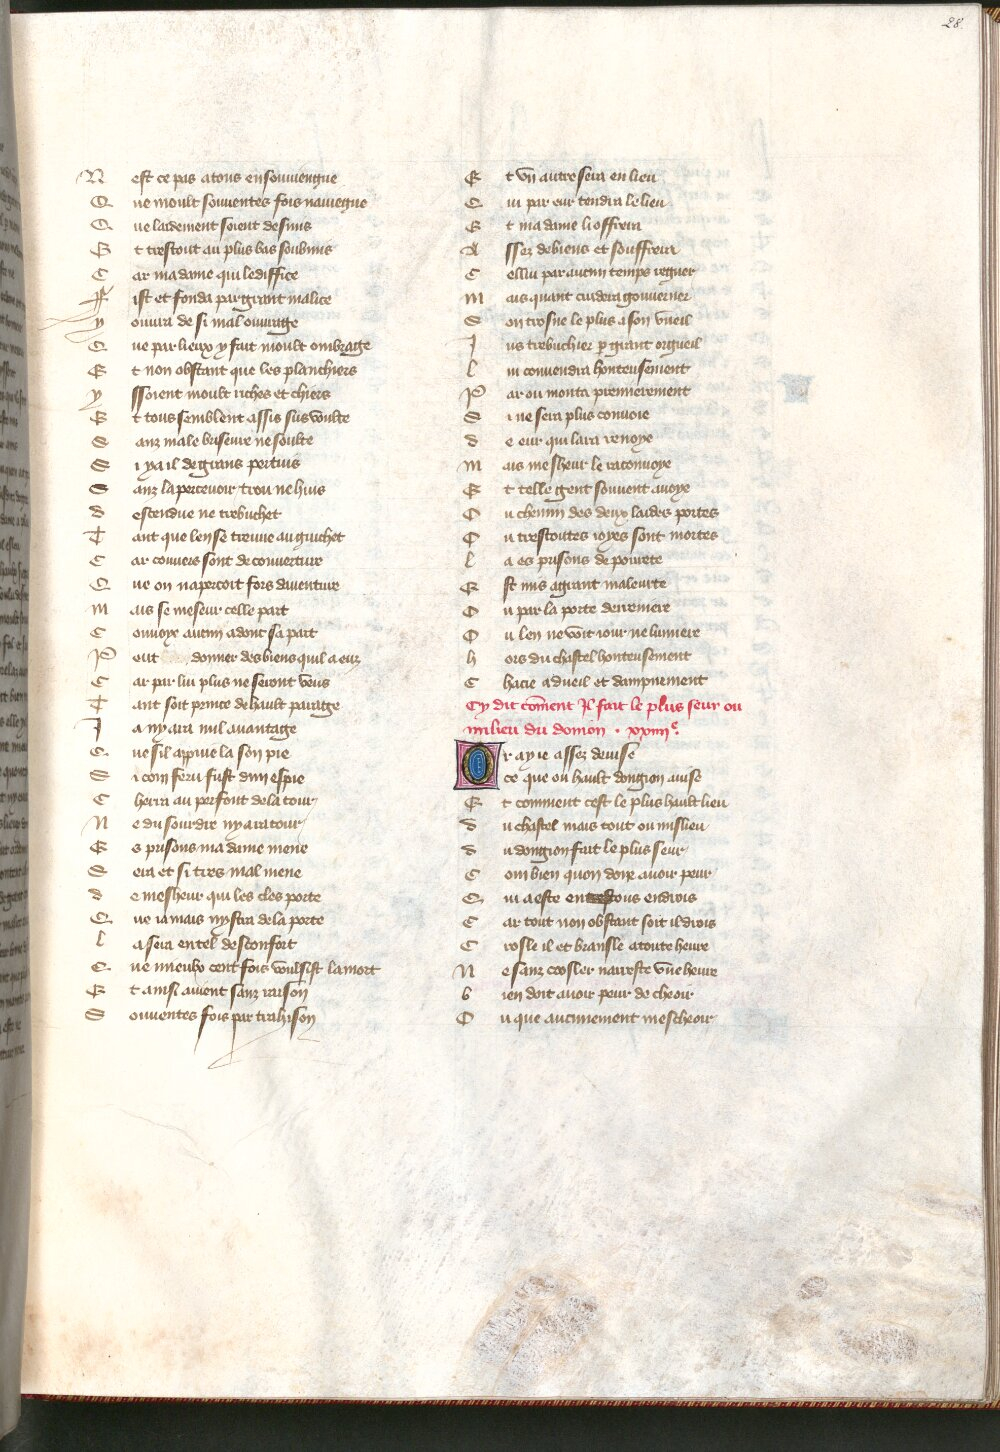 28.
N est ce pas a tous ensouuengne
Q ue moult souuentes fois nauiegne
Q ue laidement soient desmis
E t trestout au plus bas soubmis
C ar ma dame qui lediffice
F ist et fonda par grant malice
Y ouura de si mal ouurage
Q ue par lieux y fait moult ombrage
E t non obstant que les planchiers
Y ssoient moult riches et chiers
E t tous semblent assis sus voulte
S anz male briseure ne soulte
S i ya il de grans pertuis
S anz lapercevoir trou ne huis
D estendue ne trebuchet
T ant que len se treuue au guichet
C ar couuers sont de couuerture
Q ue on napercoit fors dauenture
M ais se meseur celle part
C onuoye aucun adont sa part
P ert donner des biens quil a euz
C ar par lui plus ne seront veus
T ant soit prince de hault parage
J a ny ara nul auantage
Q ue sil appuie la son pie
S i com feru fust dun espie
C herra au parfont de la tour
N e du sourdre ny ara tour
E s prisons ma dame mene
S era et si tres mal mene
D e mesheur qui les cles porte
Q ue iamais nystra de la porte
L a sera en tel desconfort
Q ue mieulx cent fois voulsist la mort
E t ainsi auient sanz raison
S ouuentes fois par trahison
E t vn autre sera en lieu
C ui par eur tendra le lieu
E t ma dame li offrera
A ssez de biens et souffrera
C ellui par aucun temps regner
M ais quant cuidera gouuerner
S on trosne le plus a son vueil
J us trebuchier p grant orgueil
L ui conuendra honteusement
P ar ou monta premierement
S i ne sera plus conuoie
D e eur qui lara renoye
M ais mesheur le raconuoye
E t telle gent souuent auoye
O u chemin des deux laides portes
O u trestoutes ioyes sont mortes
L a es prisons de pourete
E st mis a grant maleurte
O u par la porte derreniere
O u len ne voit iour ne lumiere
H ors du chastel honteusement
C hacie a dueil et dampnement
Cy dit coment Il fait le plus seur ou
milieu du donion . xxiiiie.
O r ay ie assez deuise
ce que ou hault dongion auise
E t comment cest le plus hault lieu
D u chastel mais tout ou mislieu
D u dongion fait le plus seur
C ombien quon doye auoir peur
Q ui a este en tous endrois
C ar tout non obstant soit il drois
C rosle il et bransle a toute heure
N e sanz crosler narreste vne heure
B ien doit auoir peur de cheoir
O u que aucunement mescheoir